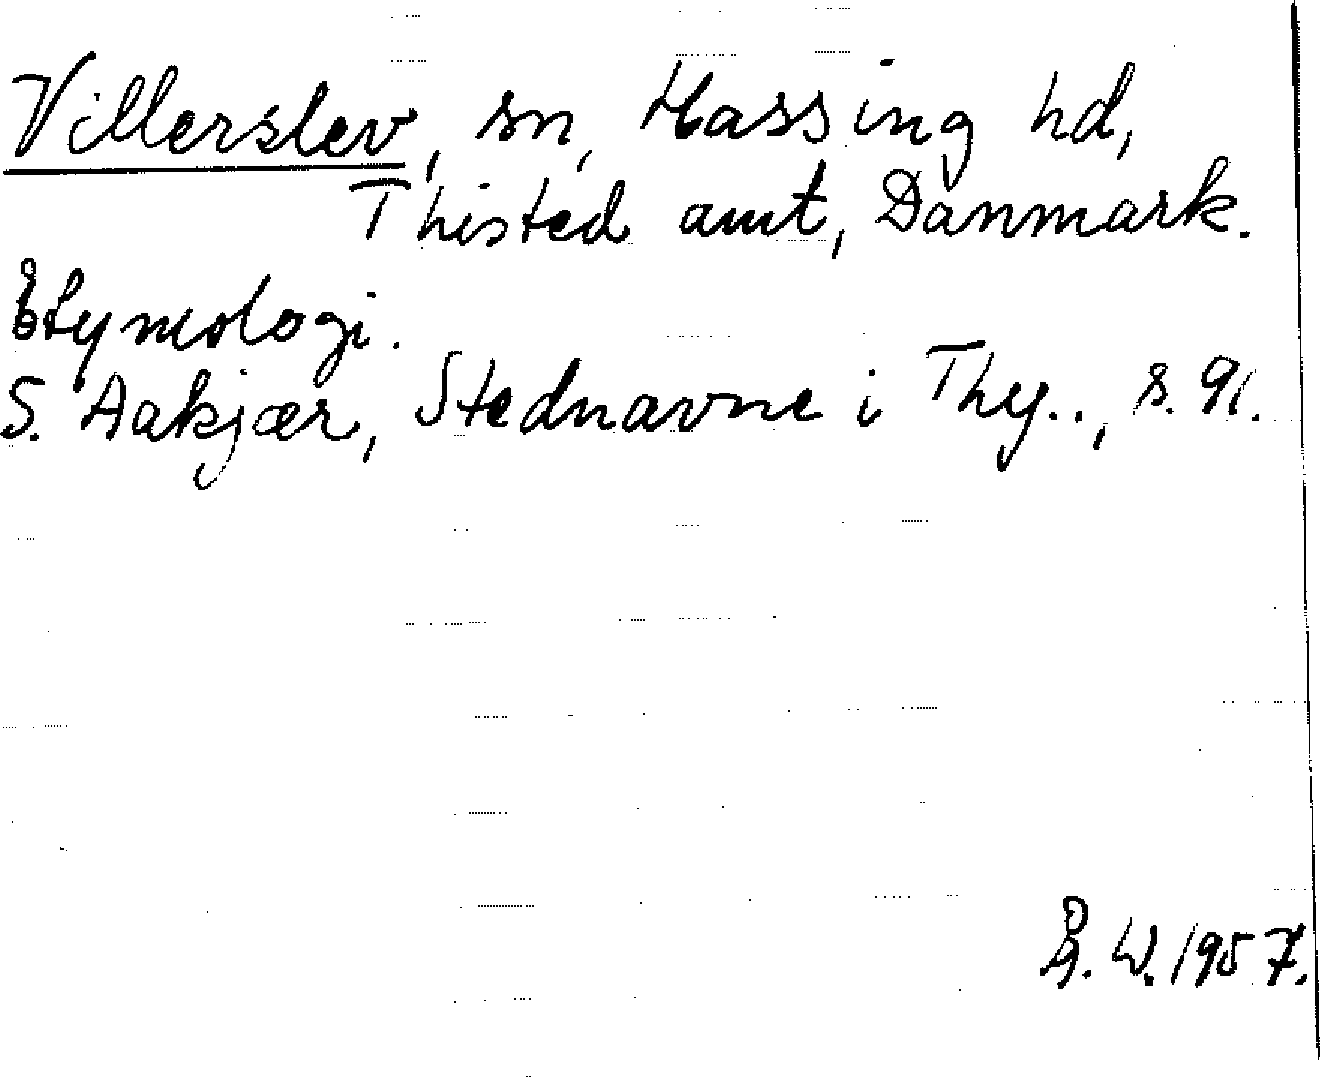 Villerslev, sn, Hassing hd,
Thisted amt, Danmark.
Etymologi.
S. Aakjær, Stednavne i Thy.., s. 91.
Å. W. 1957.